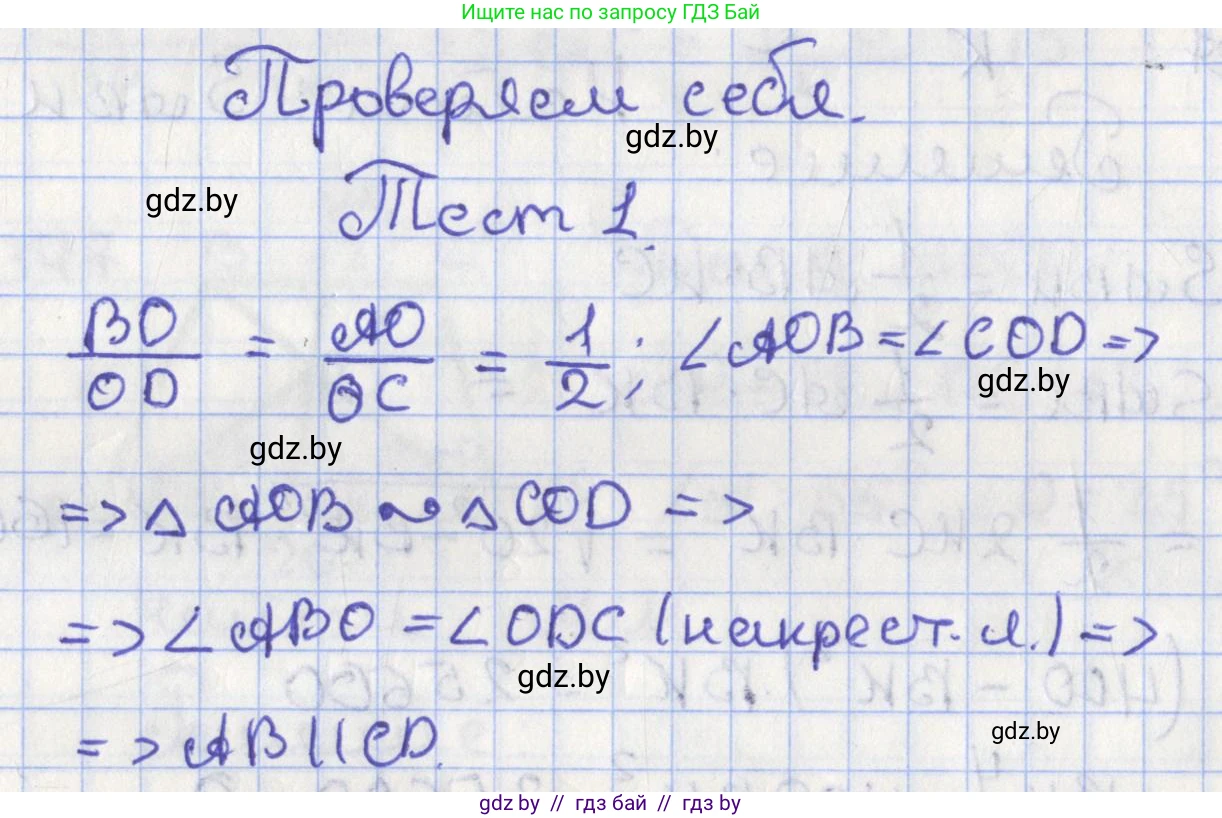 Ищите нас по запросу ГДЗ Бай
Проверяем себя.
gdz.by
gdz.by
Тест 1.
BO/OD = AO/OC = 1/2; ∠AOB = ∠COD =>
gdz.by
gdz.by
=> △ AOB ~ △ COD =>
=> ∠ABO = ∠ODC (накрест. л.) =>
gdz.by
gdz.by
=> AB || CD.
gdz.by // гдз бай // гдз by